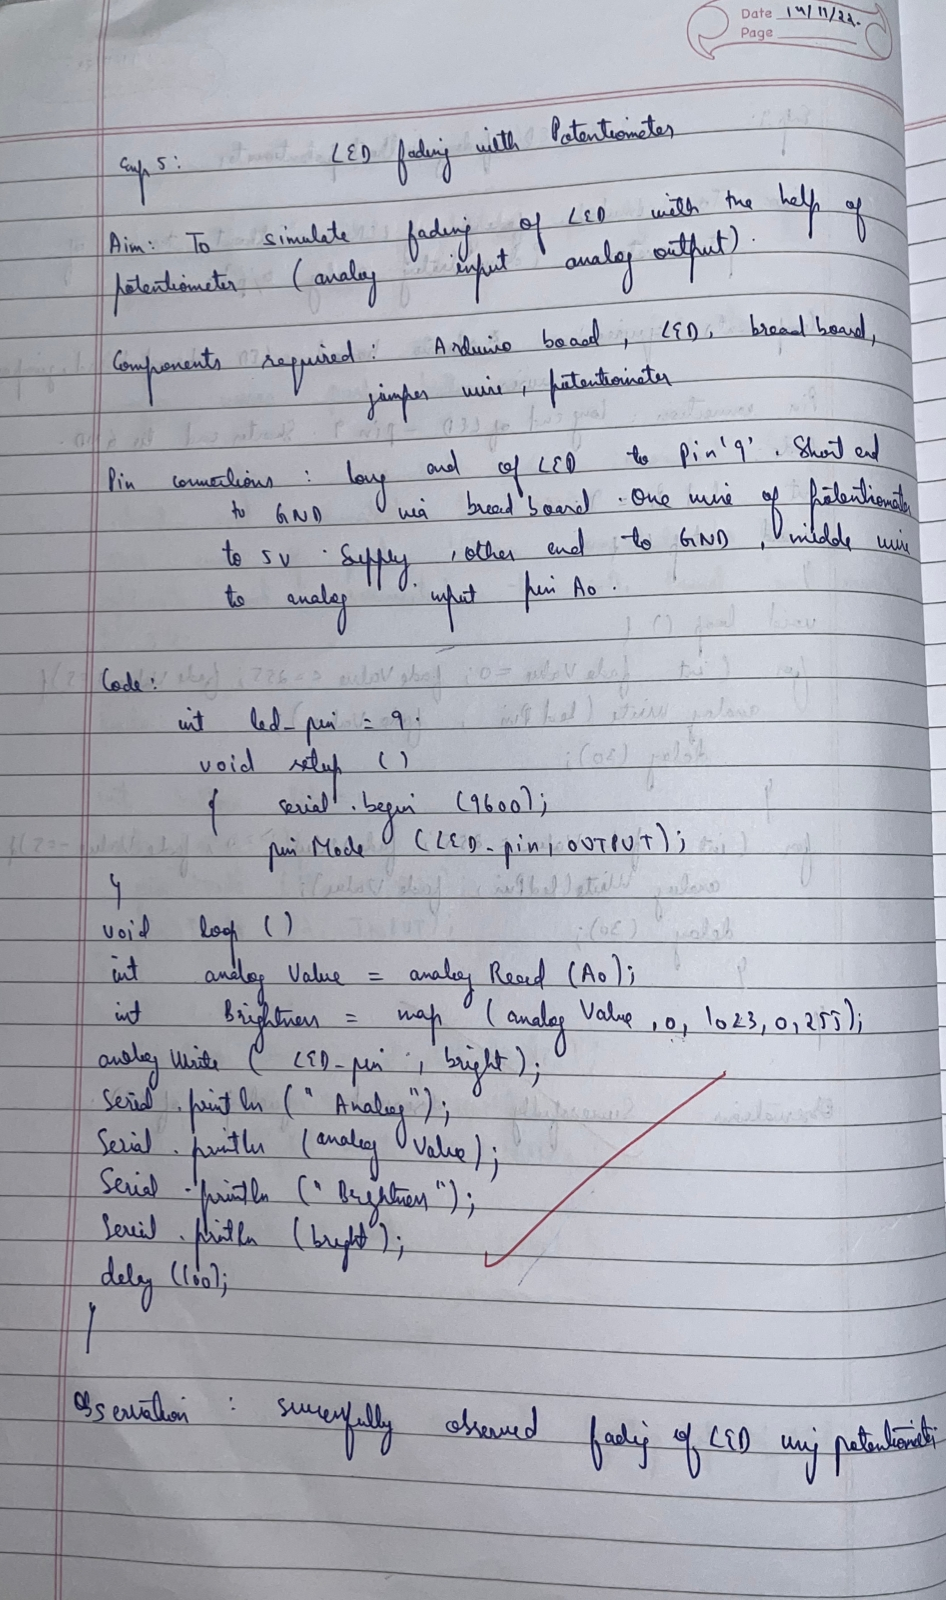 Date 14/11/22.
Page
Exp 5: LED fading with Potentiometer
Aim: To simulate fading of LED with the help of
potentiometer (analog input analog output).
Components required: Arduino board, LED, bread board,
jumper wire, potentiometer
Pin connections: long end of LED to Pin '9'. Short end
to GND via bread board. One wire of potentiometer
to 5V supply, other end to GND, middle wire
to analog input pin A0.
Code:
int led_pin = 9.
void setup ()
{ serial.begin (9600);
pin Mode (LED-pin, OUTPUT);
}
void loop ()
int analog Value = analog Read (A0);
int Brightness = map (analog Value, 0, 1023, 0, 255);
analog Write (LED-pin, bright);
Serial.println ("Analog");
Serial.println (analog Value);
Serial.println ("Brightness");
Serial.println (bright);
delay (100);
}
Observation: successfully observed fading of LED using potentiometer